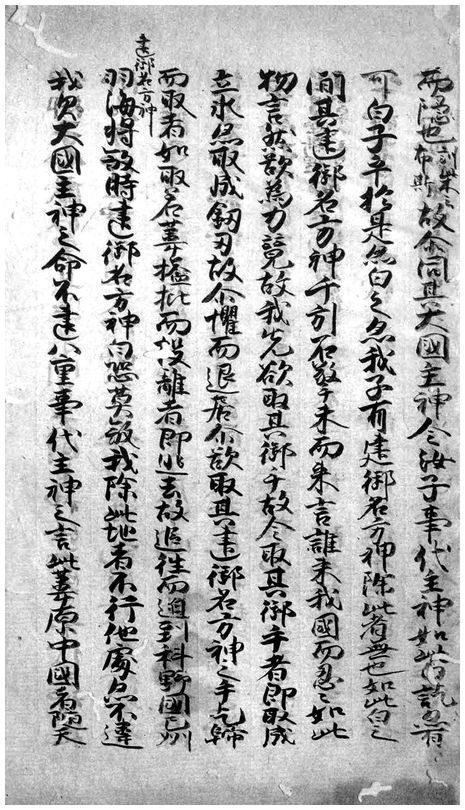 而隠也訓柴云布斯故尓問其大國主神今汝子事代主神如此白訖亦有
可白子乎於是亦白之亦我子有建御名方神除此者無也如此白之
間其建御名方神千引石擎手末而来言誰来我國而忍々如此
物言然欲為力競故我先欲取其御手故令取其御手者即取成
立氷亦取成釼刃故尓懼而退居尓欲取其建御名方神之手乞歸
而取者如取若葦搤批而投離者即逃去故追往而迫到科野國之州
羽海将敬時建御名方神白恐莫敬我除此地者不行他處亦不違
建御名方神
我父大國主神之命不違八重事代主神之言此葦原中國者随天